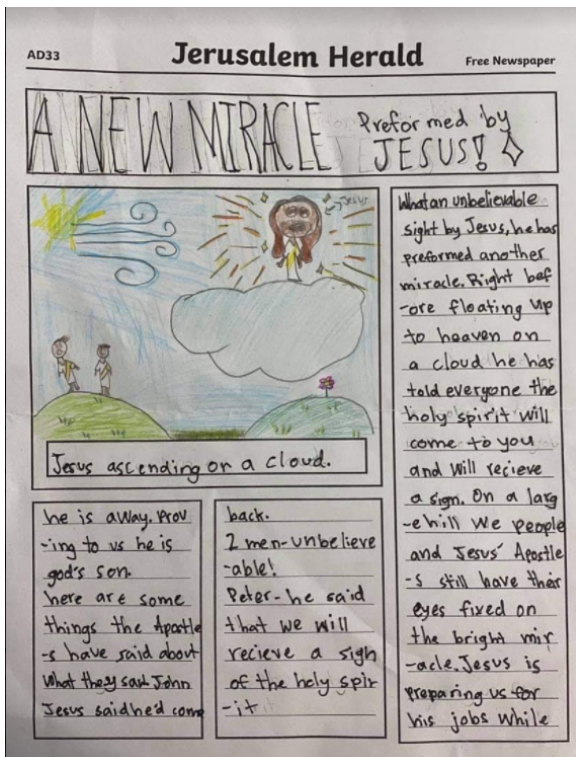 AD33
Jerusalem Herald
Free Newspaper
A NEW MIRACLE
Preformed by
JESUS!
Jesus
Jesus ascending on a cloud.
What an unbelievable
sight by Jesus, he has
preformed another
miracle. Right bef
-ore floating up
to heaven on
a cloud he has
told everyone the
holy spirit will
come to you
and will recieve
a sign. On a larg
-e hill we people
and Jesus' Apostle
-s still have their
eyes fixed on
the bright mir
-acle. Jesus is
preparing us for
his jobs while
he is away. Prov
-ing to us he is
god's son.
here are some
things the Apostle
-s have said about
what they saw John
Jesus said he'd come
back.
2 men-unbelieve
-able!
Peter-he said
that we will
recieve a sign
of the holy spir
-it